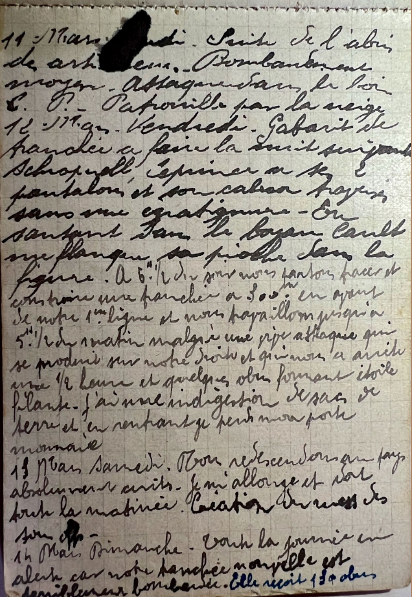 11 Mars Jeudi. Suite de l'abri
de artilleurs. Bombardement
moyen. Attaque dans le loin
C. P. - Patrouille par la neige
12 Mars. Vendredi. Gabarit de
tranchée a faire la nuit suivante
Schrapnell. Lepince a ses 2
pantalons et son calecon traversés
sans une égratignure - En
sautant dans le boyau Cault
me flanque sa pioche dans la
figure. A 6h 1/2 du soir nous partons tracer et
construire une tranchée a 300m en avant
de notre 1ère ligne et nous travaillons jusqu'à
5h 1/2 du matin malgré une attaque qui
se produit sur notre droite et qui nous a arrêté
une 1/2 heure et quelques obus formant étoile
filante. J'ai une indigestion de sacs de
terre et en rentrant je perds mon porte
monnaie
13 Mars Samedi. Nous redescendons au pays
absolument éreintés. Je m'allonge et dort
toute la matinée. Création du mess des
sous off -
14 Mars Dimanche. Toute la journée en
alerte car notre tranchée nouvelle est
terriblement bombardée. Elle reçoit 150 obus